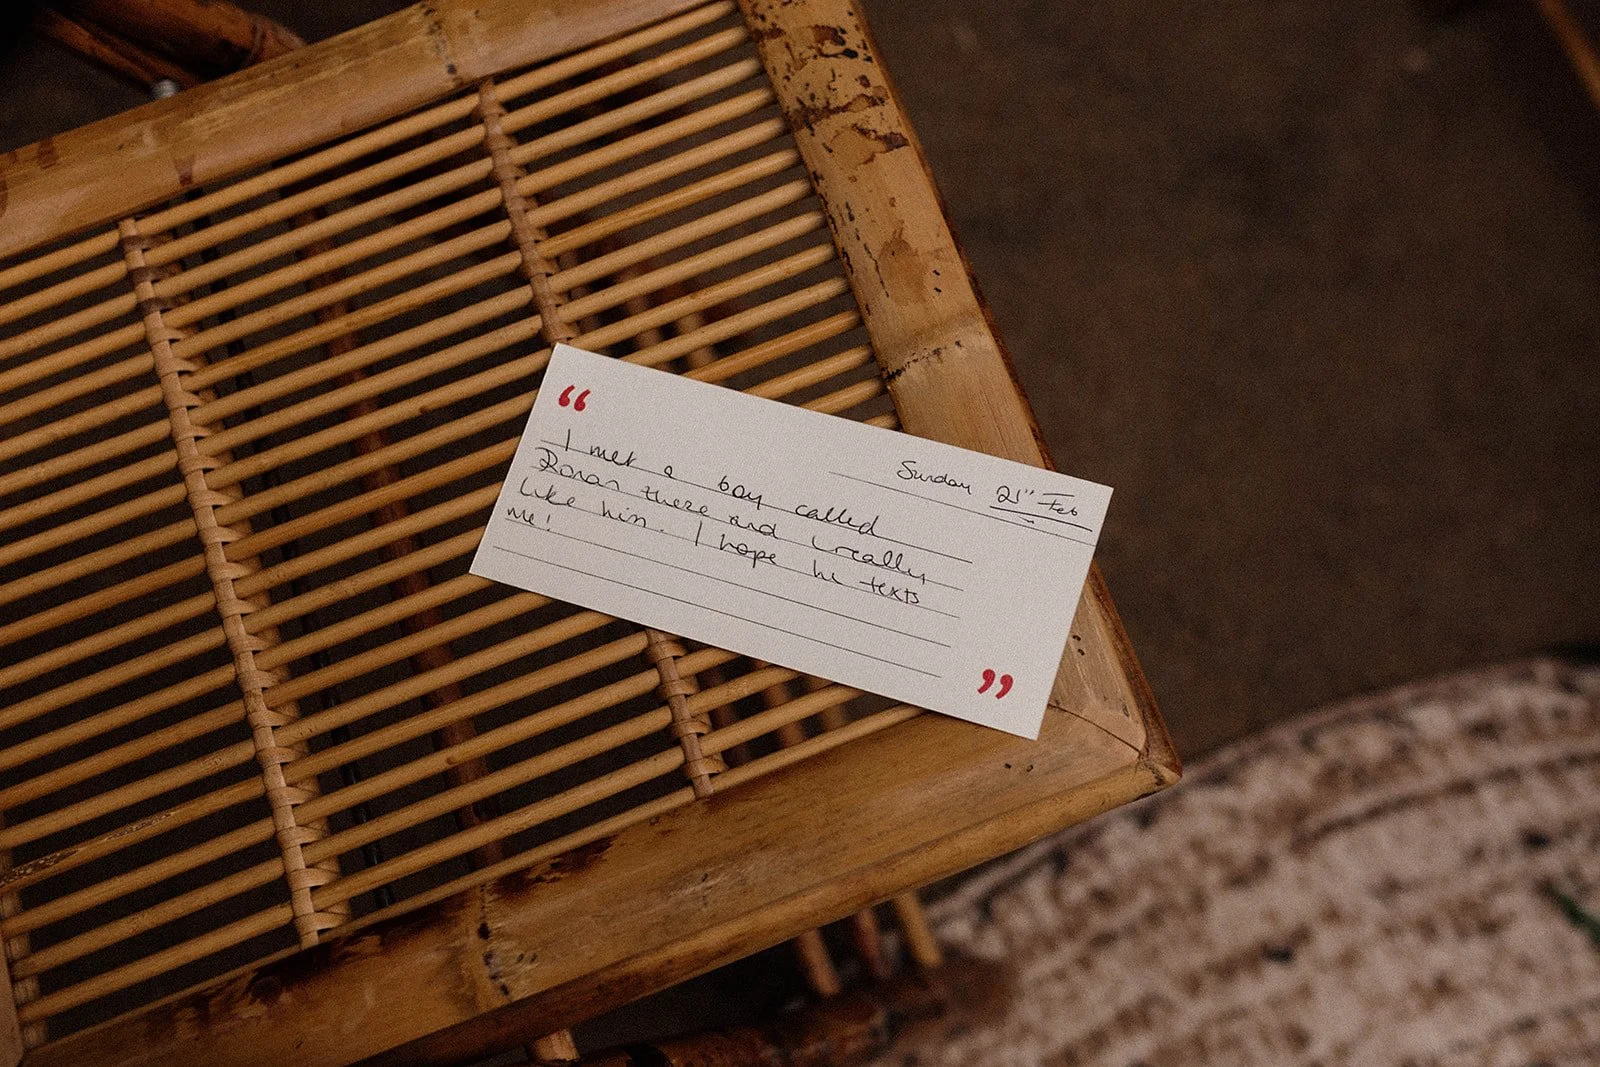 “
Sunday 21st Feb
I met a boy called
Ronan there and I really
like him. I hope he texts
me!
”